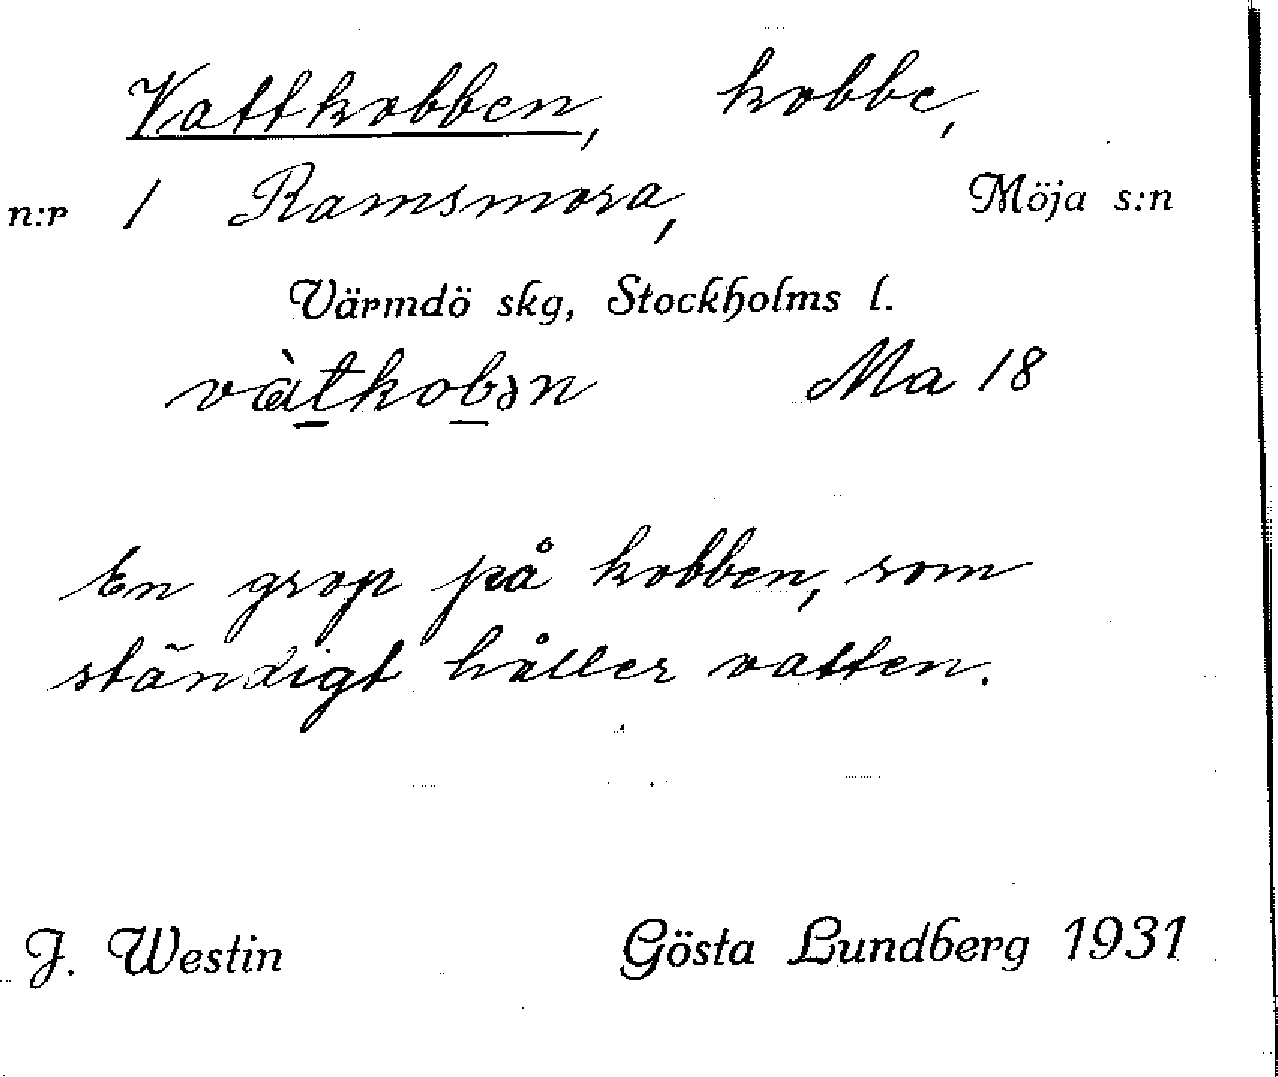 Vattkobben, kobbe,
n:r 1 Ramsmora, Möja s:n
Värmdö skg, Stockholms l.
vàt̲kob̲ən Ma 18
En grop på kobben, som
ständigt håller vatten.
J. Westin Gösta Lundberg 1931